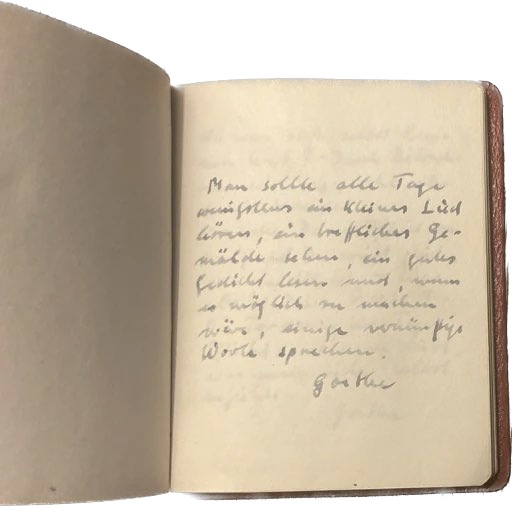 Man sollte alle Tage
wenigstens ein kleines Lied
hören, ein treffliches Ge-
mälde sehen, ein gutes
Gedicht lesen und, wenn
es möglich zu machen
wäre, einige vernünftige
Worte sprechen.
Goethe
Goethe